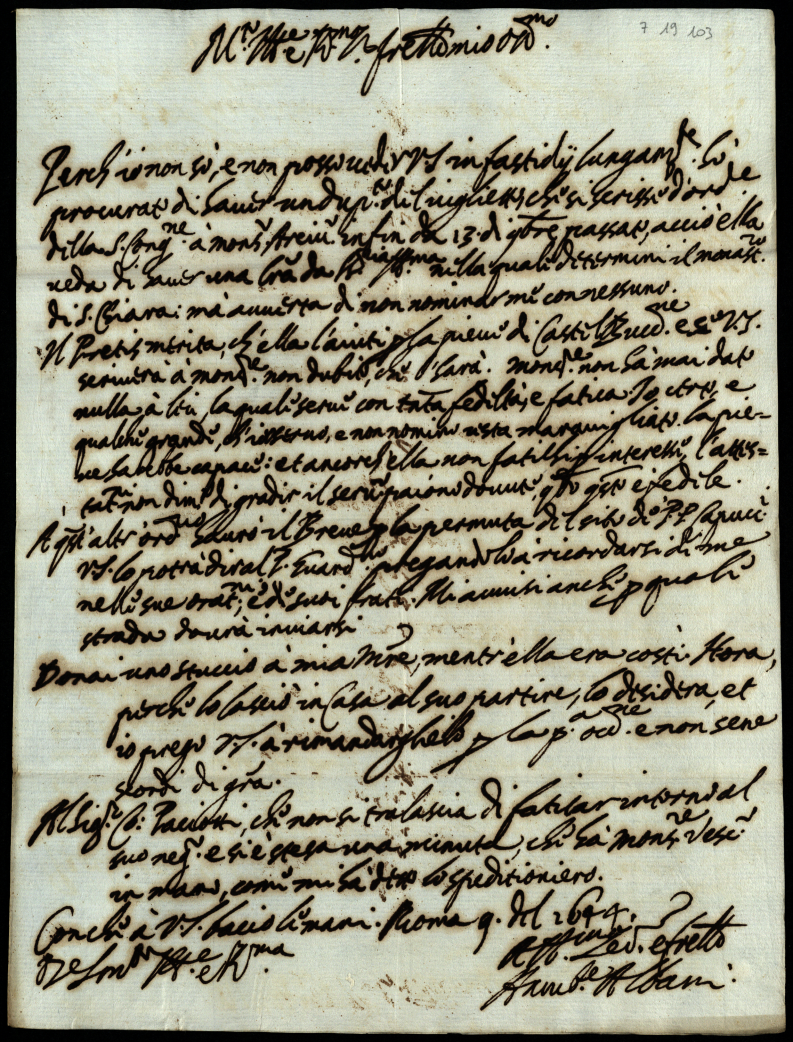 7 19 103
M.to Ill.e et R.mo S.r fr.ello mio oss.mo
Perch'io non so, e non posso veder V.S. in fastidij lungam.te hò
procurato di haver un dup.to di luiglietto, che si scrisse d'ord.e
della S. Cong.ne à mons.r Arciv.o infin da 13. di 9bre passato, acciò ella
veda di haver una l'ra da S.S. Ill.ma nella quale determini il monast.o
di S. Chiara: mà avverta di non nominar me con nessuno.
Il Pretis merita, ch'ella l'aiuti p la pieve di Castel e se V.S.
scriverà à mons.re non dubito, che l'harà. mons.re non hà mai dato
nulla à lui, la quale serve con tanta fedeltà, e fatica. Io, etro, e
qualche grande, ch'io servo, e non nomino resta maravigliato. la pie=
ve sarebbe capace: et ancorch'ella non fatichi p interesse, l'attes=
tat.ne non dim.o di gradir il serv.o paiono dovute, q.do q.sto è fedele.
A q.st'altr'ord.rio havrò il Breve p la permuta del sito de' P.P. Capuc.i
V.S. lo potrà dir al P. Guard.no pregandolo à ricordarsi di me
nelle sue orat.ni, e de suoi frati. Mi avvisi anche p quale
strada dovrà inviarsi
Donai uno stuccio à mia M're, mentr'ella era costì. Hora,
perche lo lasciò in Casa al suo partire, lo desidera, et
io prego V.S. à rimandarghelo p la p.a occ.ne e non se ne
scordi di gra.
Al Sig.r Co: Paciotti, che non si tralascia di faticar intorno al
suo neg.o e si è stesa una minuta, che hà Mons.re Vesc.o
in mano, come mi hà detto lo speditioniero.
Con che à V.S. bacio le mani. Roma 9. del 1644.
D V.S. m.to Ill.e e R.ma
Aff.mo Ser.e e fr.ello
Annib.e Albani.